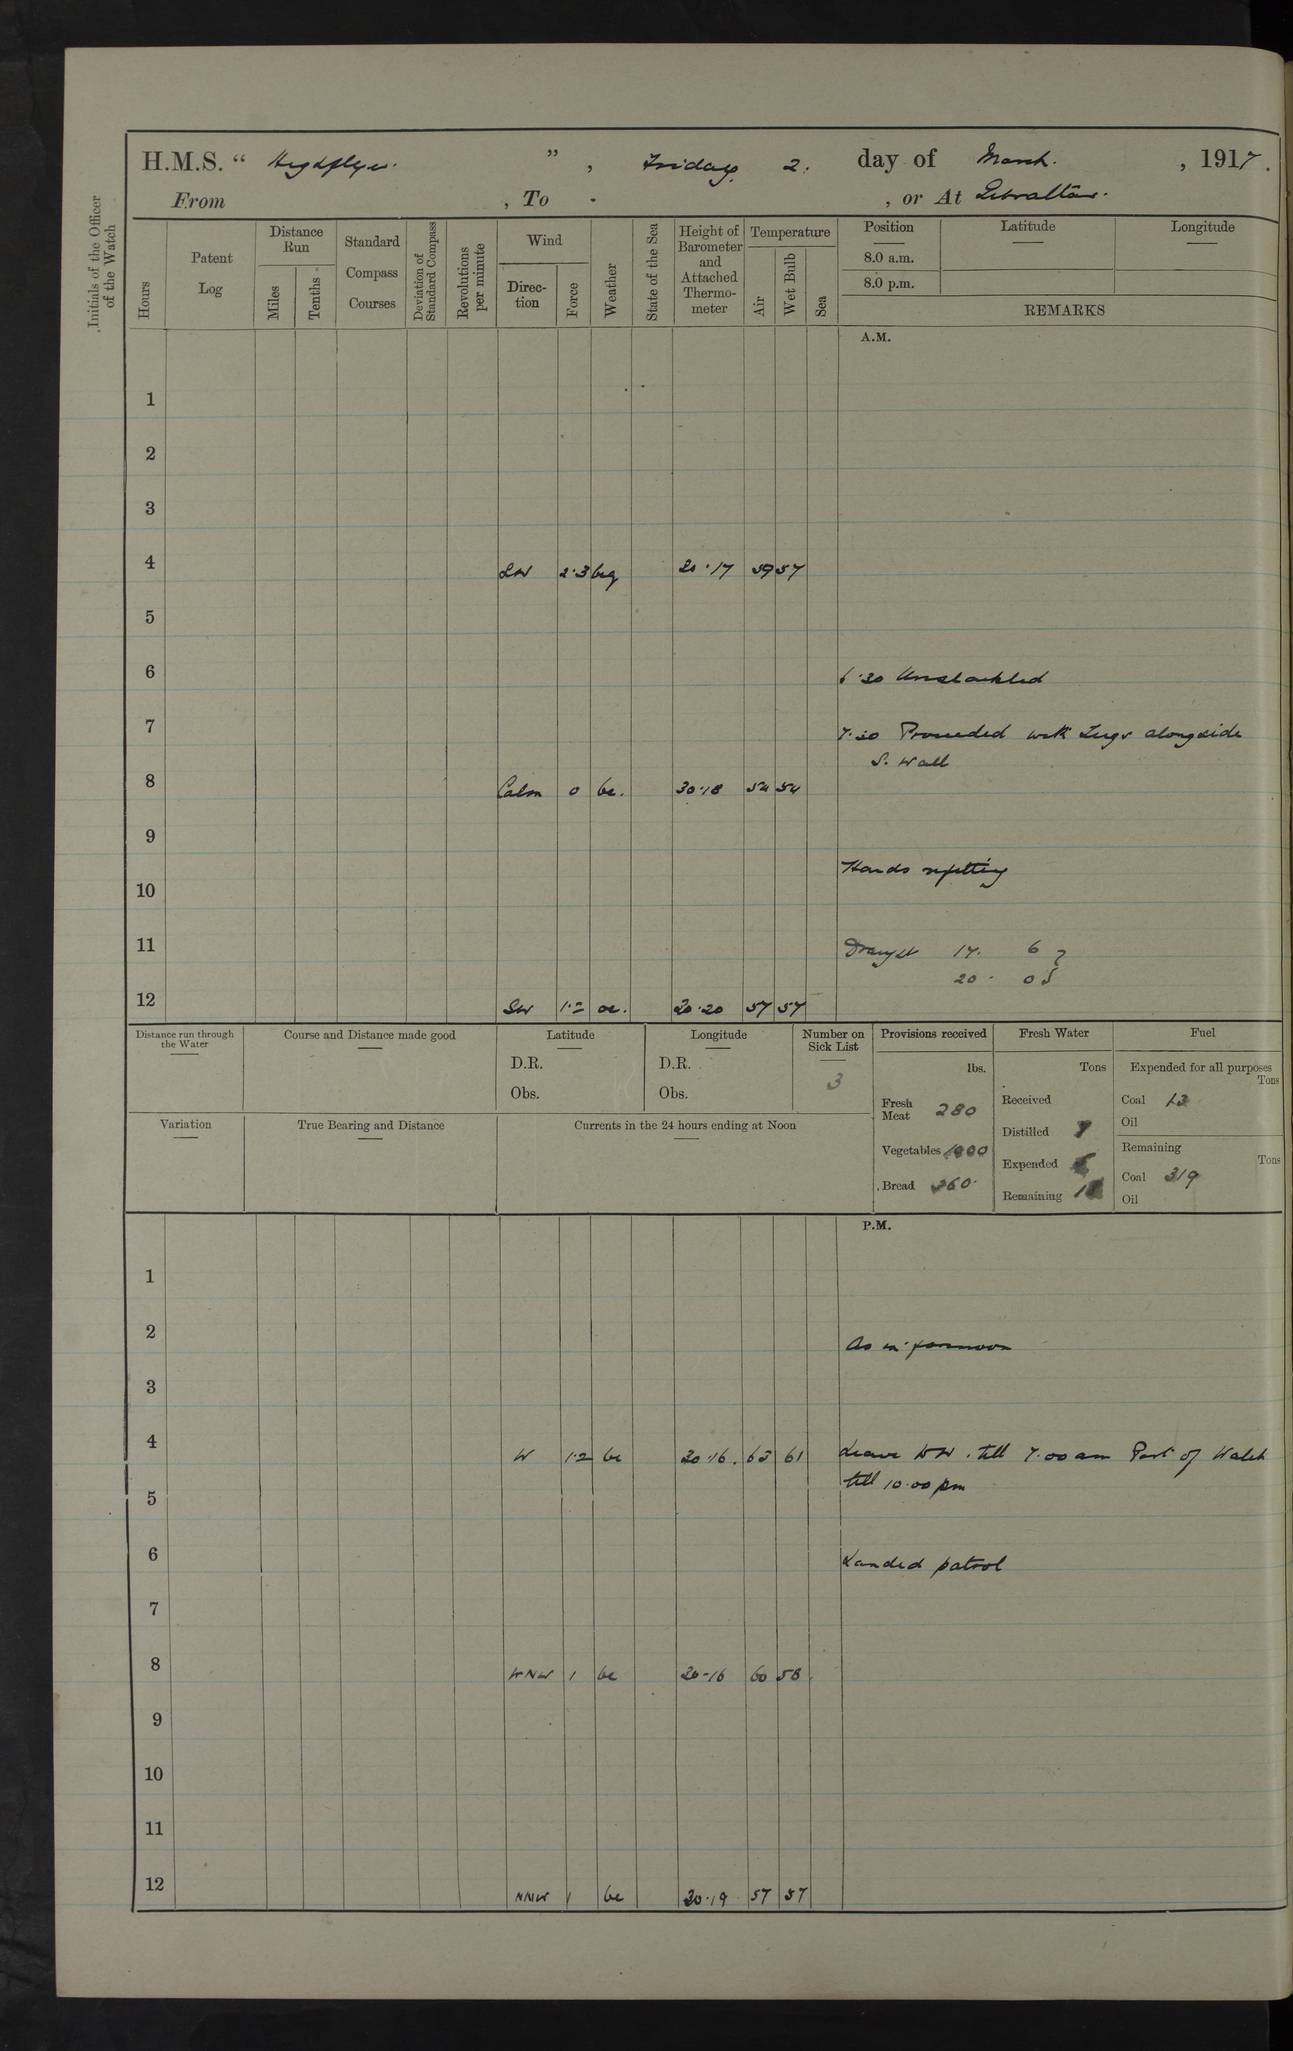 H.M.S. " Highflyer. " , Friday 2. day of March. , 1917.
From , To . , or At Gibraltar.
Initials of the Officer of the Watch
Hours
Patent Log
Distance Run
Miles
Tenths
Standard Compass Courses
Deviation of Standard Compass
Revolutions per minute
Wind
Direction
Force
Weather
State of the Sea
Height of Barometer and Attached Thermometer
Temperature
Air
Wet Bulb
Sea
Position
8.0 a.m.
8.0 p.m.
Latitude
Longitude
REMARKS
A.M.
1
2
3
4 SW 2·3 30·17 59 57
5
6 6·30 Unshackled
7 7·30 Proceeded with Tugs alongside
S. Wall
8 Calm 0 bc. 30·18 54 54
9
Hands refitting
10
11 Draught 17. 6 }
20 · 0 }
12 SW 1·2 oc. 30·20 57 57
Distance run through the Water
Course and Distance made good
Latitude
D.R.
Obs.
Longitude
D.R.
Obs.
Number on Sick List
3
Provisions received
lbs.
Fresh Meat 280
Vegetables
Bread 360
Fresh Water
Tons
Received
Distilled
Expended
Remaining
Fuel
Expended for all purposes
Tons
Coal 13
Oil
Remaining
Tons
Coal 319
Oil
Variation
True Bearing and Distance
Currents in the 24 hours ending at Noon
P.M.
1
2 As in forenoon
3
4 W 1·2 bc 30·16. 63 61 Leave till 7.00 am Part of Watch
till 10.00 pm
5
6 Landed patrol
7
8 WNW 1 bc 30·16 60 58
9
10
11
12 NNW 1 bc 30·19 57 57